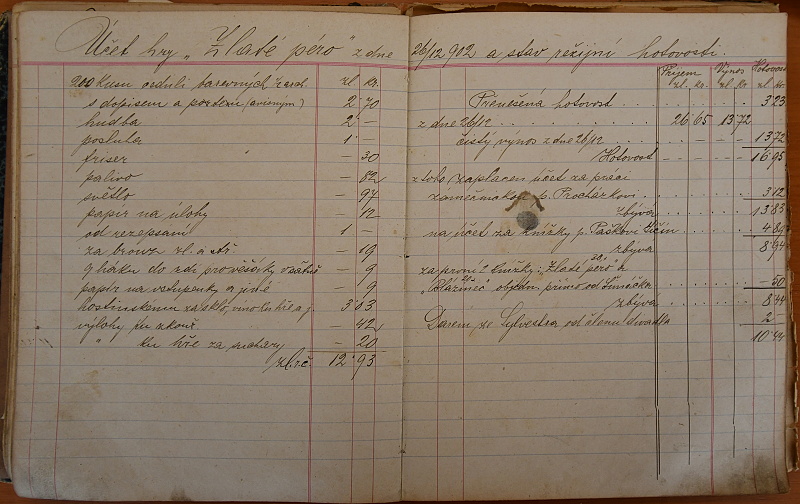 Účet hry „Zlaté péro" z dne 26/12 902 a stav režijní hotovosti.
200 kusu cedulí barevných zl. kr.
s dopisem a porterii 2 70
hudba 2 —
posluha 1 —
friser — 30
palivo — 82
světlo — 97
papír na úlohy — 12
od rozepsaní 1 —
za bronz zl. a stř. — 19
9 háku do zdi pro věšáky v šatně — 9
papír na vstupenky a jiné — 9
hostinskému za sklo, víno ku hře a j. 3 03
výlohy při zkouš. — 42
" ku hře za suchary — 20
zl. r. č. 12 93
Příjem Výnos Hotovost
zl. kr. zl. kr. zl. kr.
Přenešená hotovost 3 23
z dne 26/12 26 65 13 72
čistý výnos z dne 26/12 13 72
Hotovost 16 95
z toho zaplacen účet za práci
zámečníkovi p. Procházkovi 3 12
zbývá 13 83
na účet za knížky p. Paškovi Jičín 4 89
zbývá 8 94
za první 2 knížky: „Zlaté péro" a
objedn. přímo od Šimáčka — 50
zbývá 8 44
Darem ze Sylvestra od členu divadla 2 —
10 44